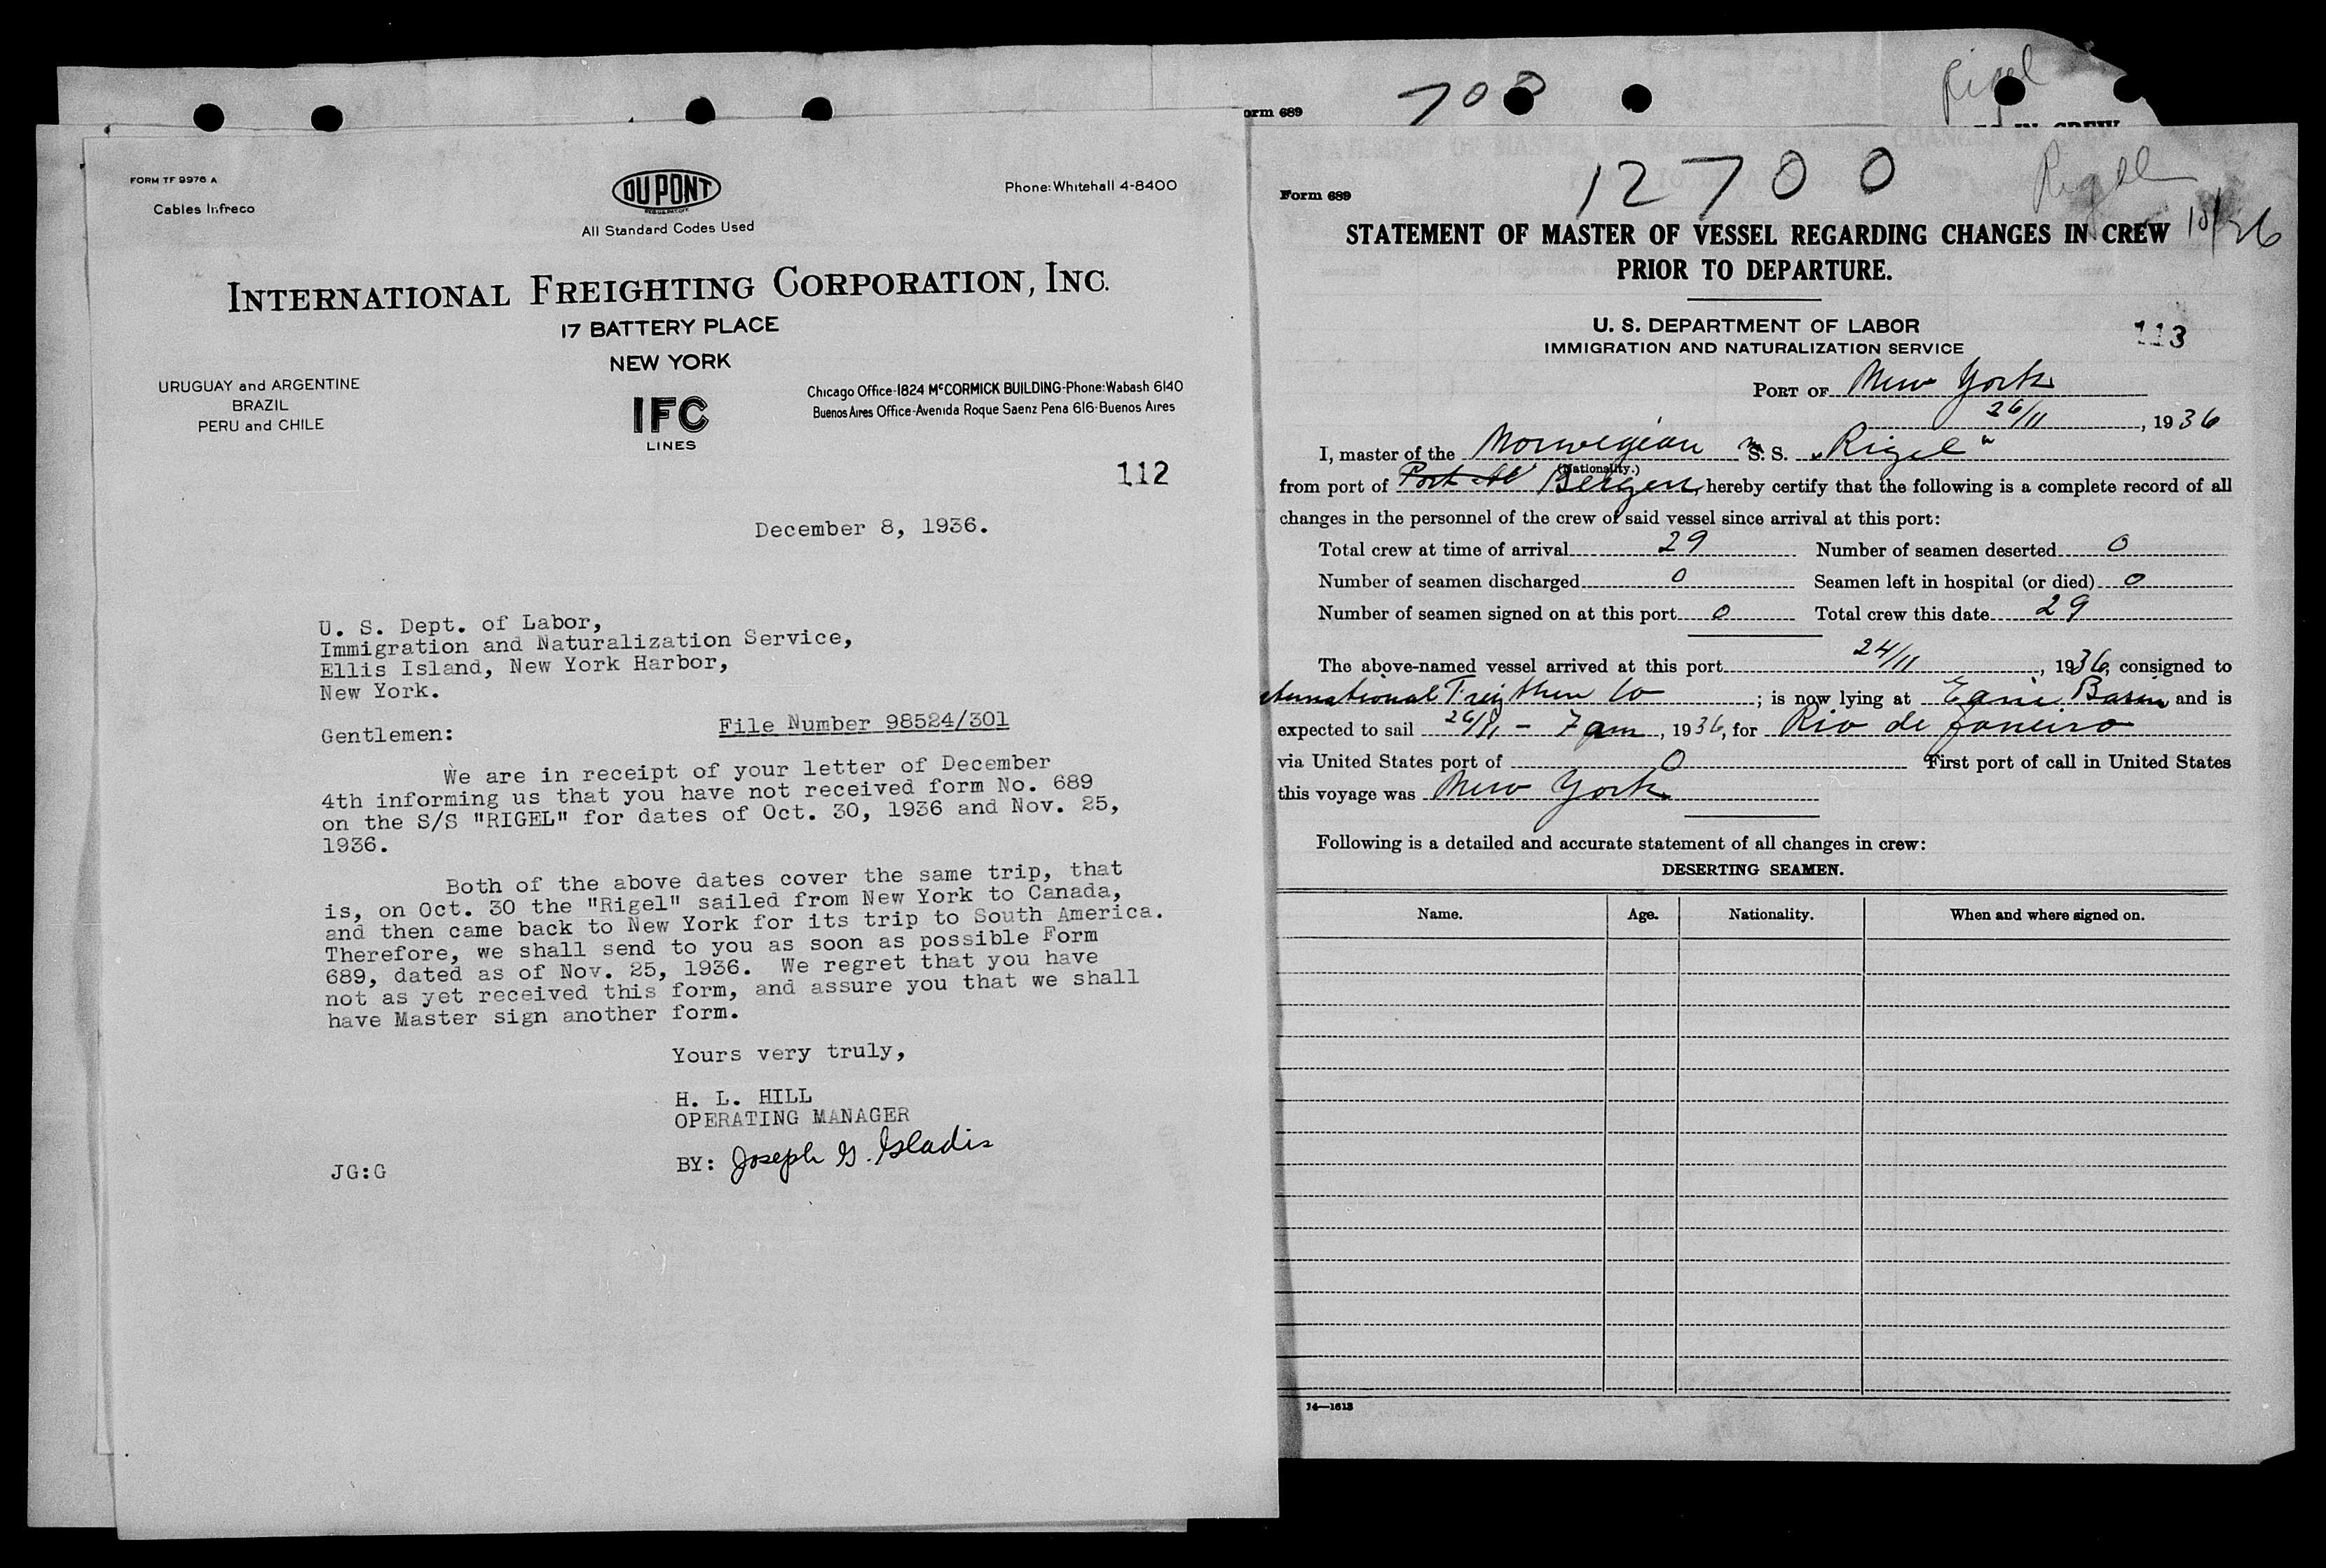 FORM TF 9976 A
Cables Infreco
DU PONT
All Standard Codes Used
Phone: Whitehall 4-8400
INTERNATIONAL FREIGHTING CORPORATION, INC.
17 BATTERY PLACE
NEW YORK
URUGUAY and ARGENTINE
BRAZIL
PERU and CHILE
IFC
LINES
Chicago Office-1824 McCORMICK BUILDING-Phone: Wabash 6140
Buenos Aires Office-Avenida Roque Saenz Pena 616-Buenos Aires
112
December 8, 1936.
U. S. Dept. of Labor,
Immigration and Naturalization Service,
Ellis Island, New York Harbor,
New York.
Gentlemen: File Number 98524/301
We are in receipt of your letter of December
4th informing us that you have not received form No. 689
on the S/S "RIGEL" for dates of Oct. 30, 1936 and Nov. 25,
1936.
Both of the above dates cover the same trip, that
is, on Oct. 30 the "Rigel" sailed from New York to Canada,
and then came back to New York for its trip to South America.
Therefore, we shall send to you as soon as possible Form
689, dated as of Nov. 25, 1936. We regret that you have
not as yet received this form, and assure you that we shall
have Master sign another form.
Yours very truly,
H. L. HILL
OPERATING MANAGER
BY: Joseph G. Gladis
JG:G
orm 689
708
Rigel
IN CREW
Form 689
12700
Rigel
STATEMENT OF MASTER OF VESSEL REGARDING CHANGES IN CREW
PRIOR TO DEPARTURE.
U. S. DEPARTMENT OF LABOR
IMMIGRATION AND NATURALIZATION SERVICE
113
PORT OF New York
26/11, 1936
I, master of the Norwegian M S. S. "Rigel"
(Nationality.)
from port of Bergen, hereby certify that the following is a complete record of all
changes in the personnel of the crew of said vessel since arrival at this port:
Total crew at time of arrival 29 Number of seamen deserted 0
Number of seamen discharged 0 Seamen left in hospital (or died) 0
Number of seamen signed on at this port 0 Total crew this date 29
The above-named vessel arrived at this port 24/11, 1936, consigned to
ternational Co; is now lying at Basin and is
expected to sail 26/11 - 7 am, 1936, for Rio de Janeiro
via United States port of 0 First port of call in United States
this voyage was New York
Following is a detailed and accurate statement of all changes in crew:
DESERTING SEAMEN.
Name. Age. Nationality. When and where signed on.
14—1613